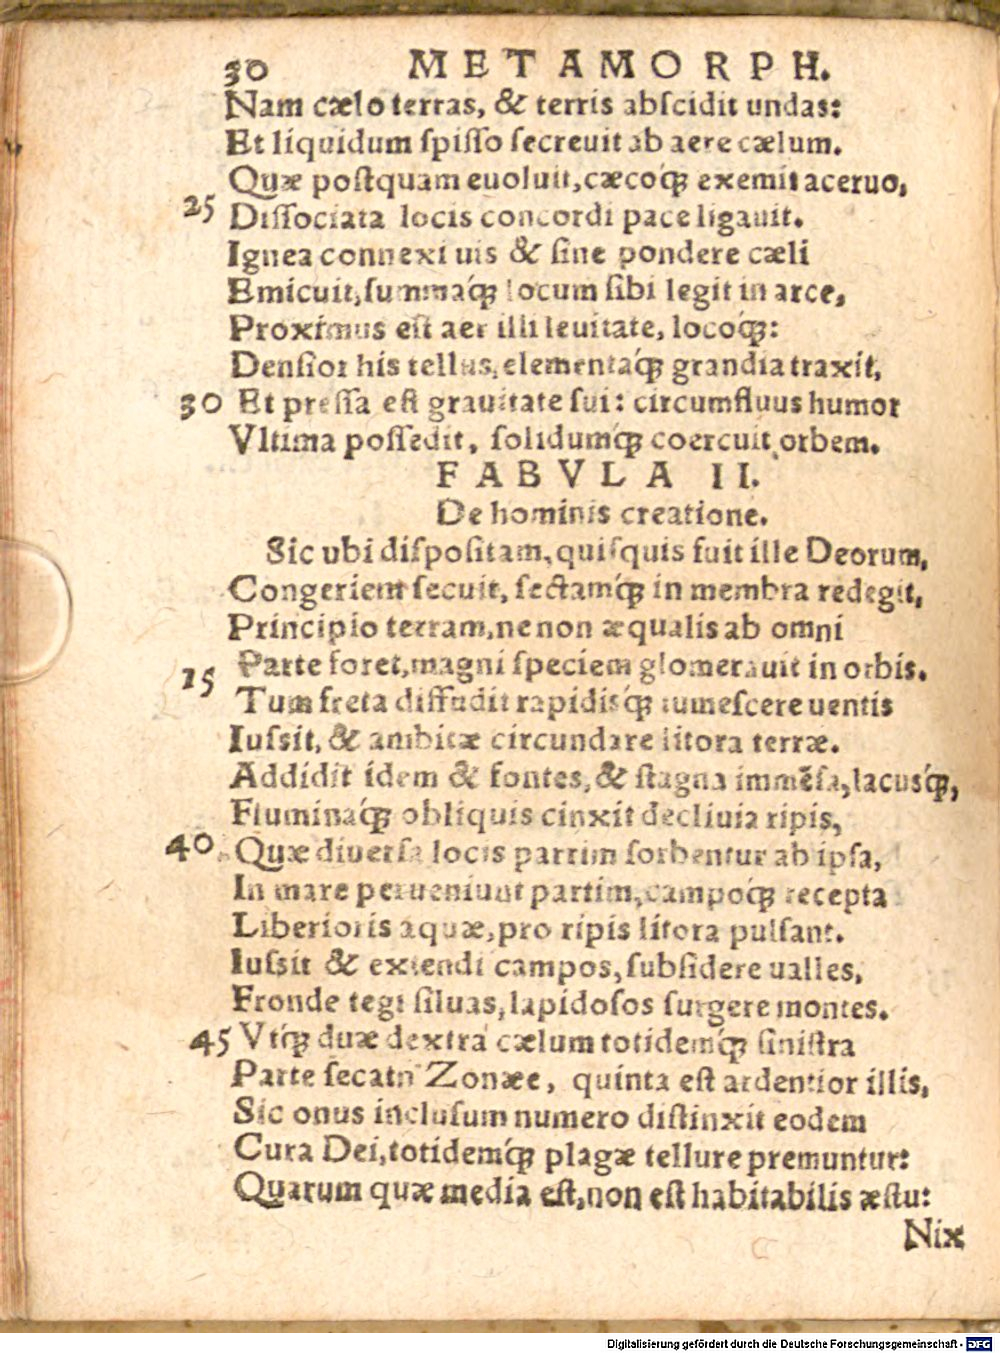 30 METAMORPH.
Nam cælo terras, & terris abſcidit undas:
Et liquidum ſpiſſo ſecreuit ab aere cælum.
Quæ poſtquam euoluit, cæcoq́; exemit aceruo,
25 Diſſociata locis concordi pace ligauit.
Ignea connexi uis & ſine pondere cæli
Emicuit, ſummaq́; locum ſibi legit in arce,
Proximus eſt aer illi leuitate, locoq́;:
Denſior his tellus, elementaq́; grandia traxit,
30 Et preſſa eſt grauitate ſui: circumfluus humor
Vltima poſſedit, ſolidumq́; coercuit orbem.
FABVLA II.
De hominis creatione.
Sic ubi diſpoſitam, quiſquis fuit ille Deorum,
Congeriem ſecuit, ſectamq́; in membra redegit,
Principio terram, ne non æqualis ab omni
35 Parte foret, magni ſpeciem glomerauit in orbis.
Tum freta diffudit rapidiſq́; tumeſcere uentis
Iuſsit, & ambitæ circundare litora terræ.
Addidit idem & fontes, & ſtagna immēſa, lacusq́;,
Fluminaq́; obliquis cinxit decliuia ripis,
40 Quæ diuerſa locis partim ſorbentur ab ipſa,
In mare perueniunt partim, campoq́; recepta
Liberioris aquæ, pro ripis litora pulſant.
Iuſsit & extendi campos, ſubſidere ualles,
Fronde tegi ſiluas, lapidoſos ſurgere montes.
45 Vtq́; duæ dextra cælum totidemq́; ſiniſtra
Parte ſecatn Zonæe, quinta eſt ardentior illis,
Sic onus incluſum numero diſtinxit eodem
Cura Dei, totidemq́; plagæ tellure premuntur:
Quarum quæ media eſt, non eſt habitabilis æſtu:
Nix
Digitalisierung gefördert durch die Deutsche Forschungsgemeinschaft - DFG